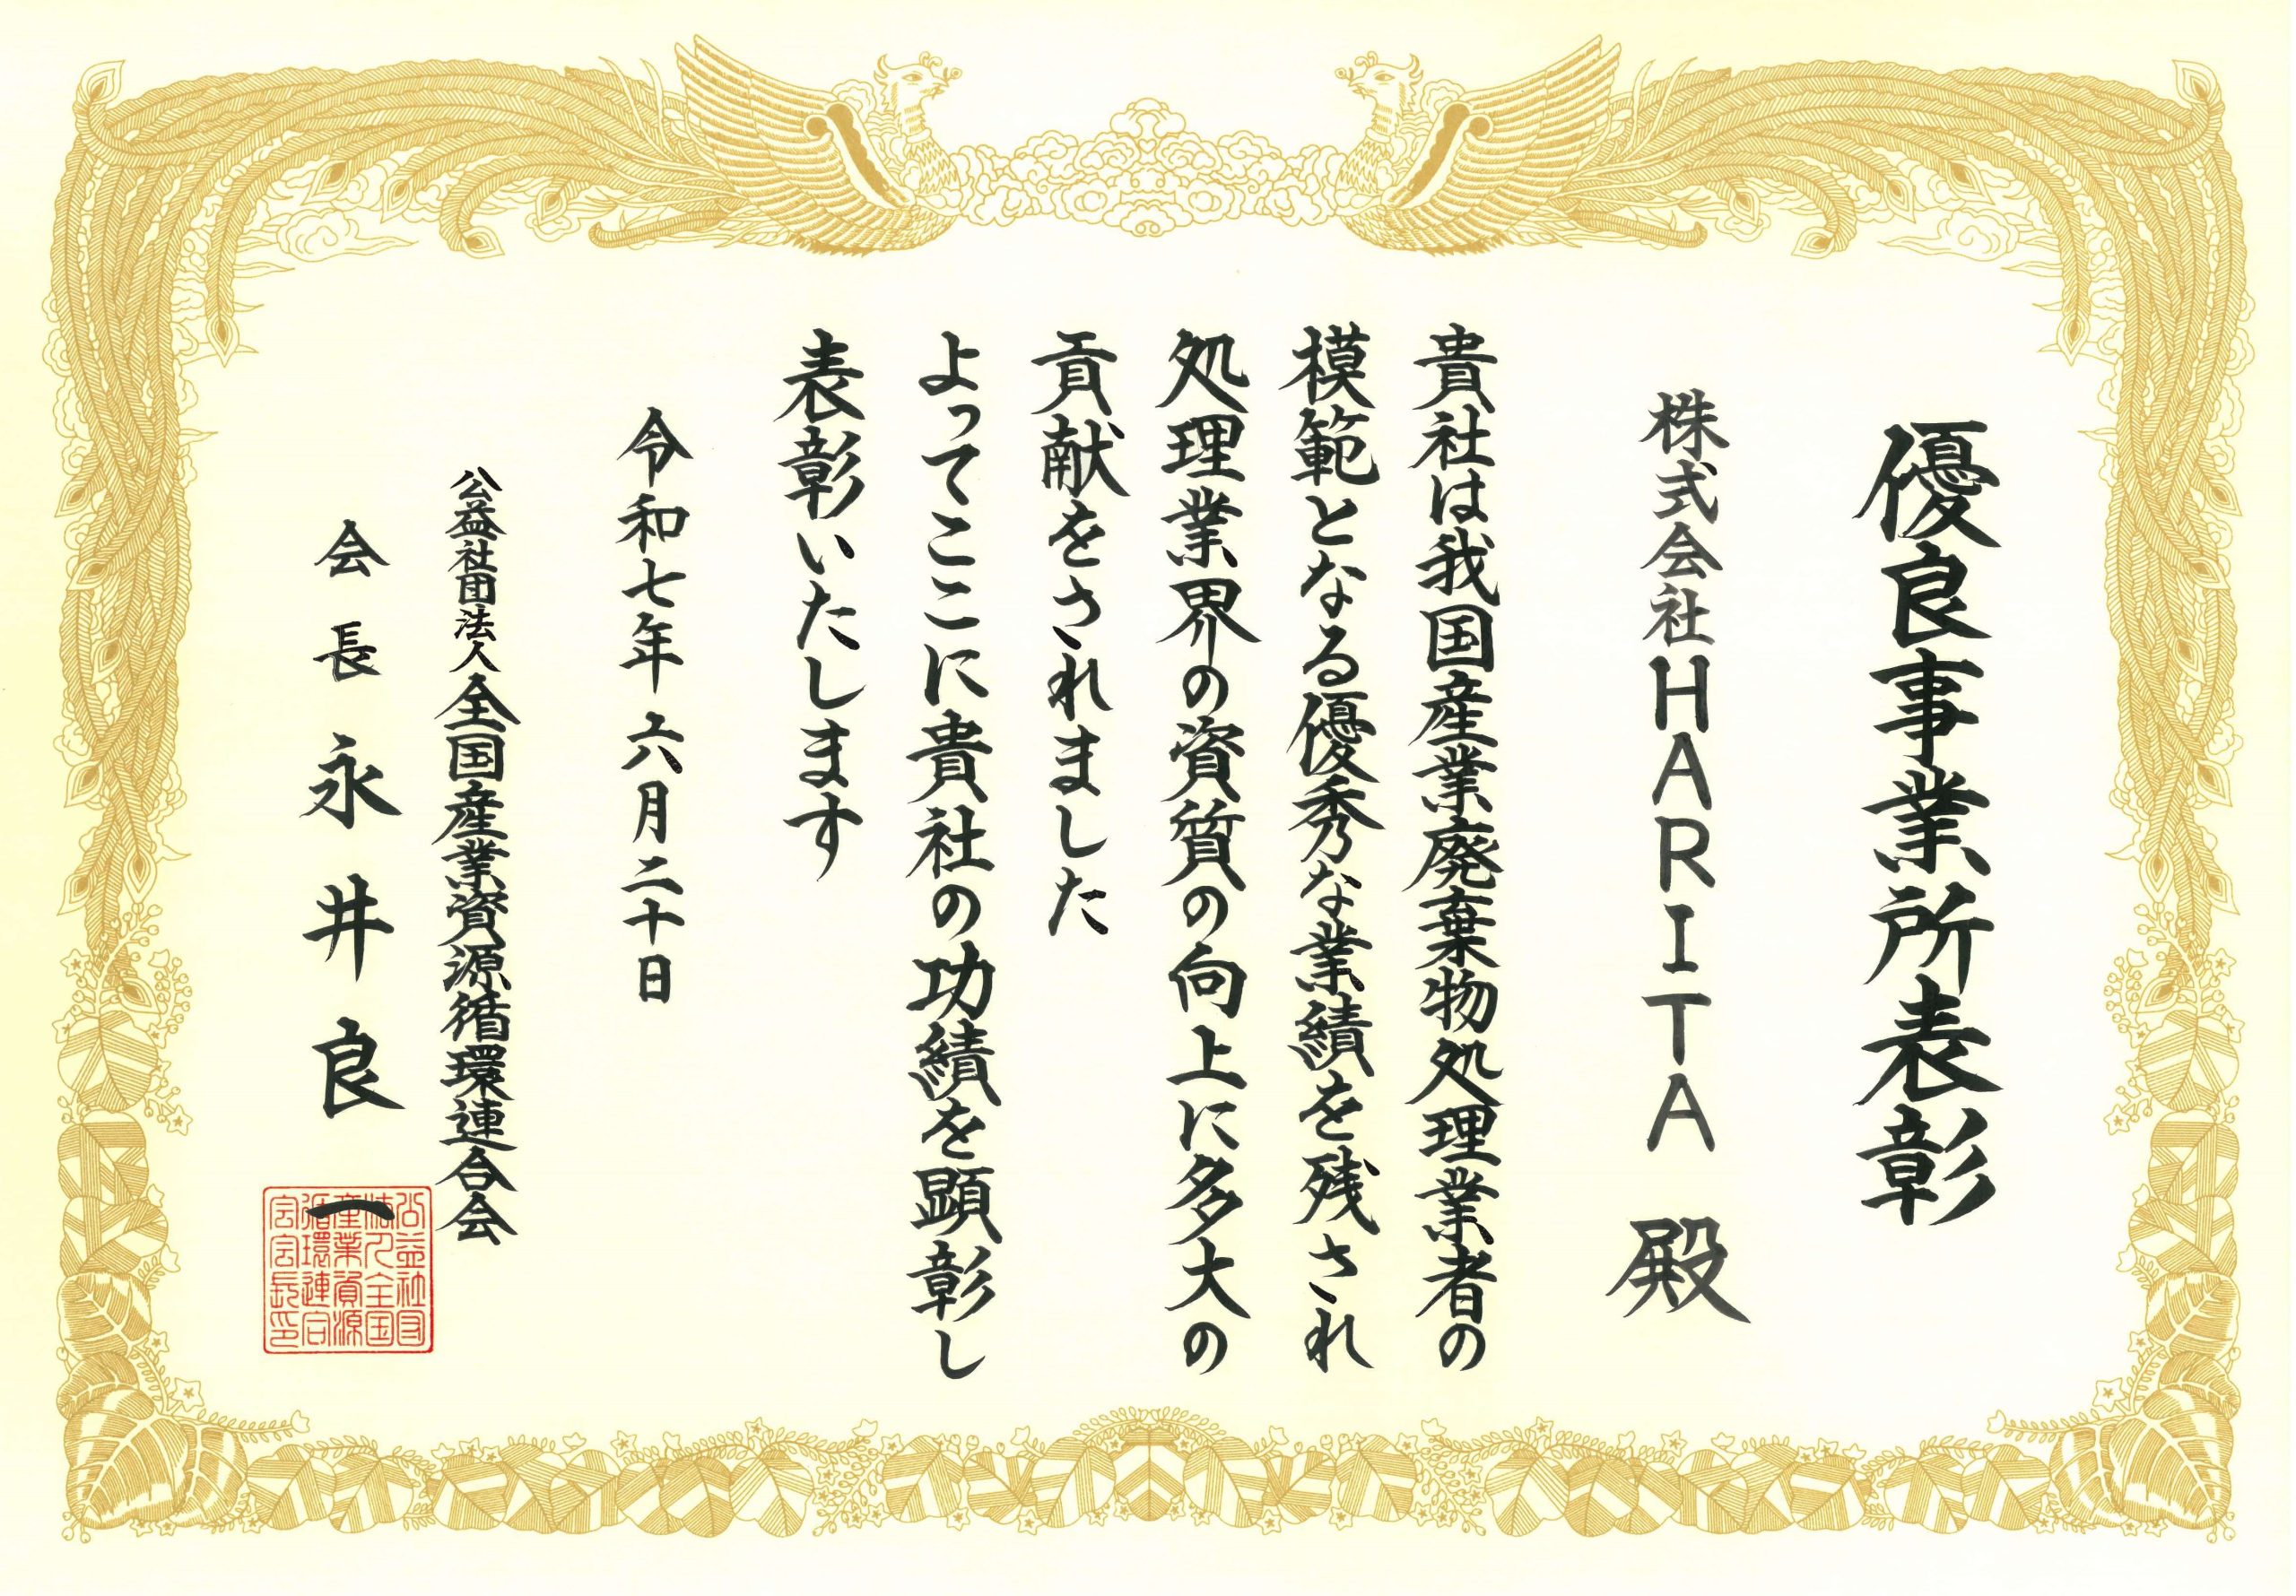 優良事業所表彰
株式会社HARITA 殿
貴社は我国産業廃棄物処理業者の
模範となる優秀な業績を残され
処理業界の資質の向上に多大の
貢献をされました
よってここに貴社の功績を顕彰し
表彰いたします
令和七年六月二十日
公益社団法人全国産業資源循環連合会
会長 永井良一
公益社団
法人全国
産業資源
循環連合
会会長印